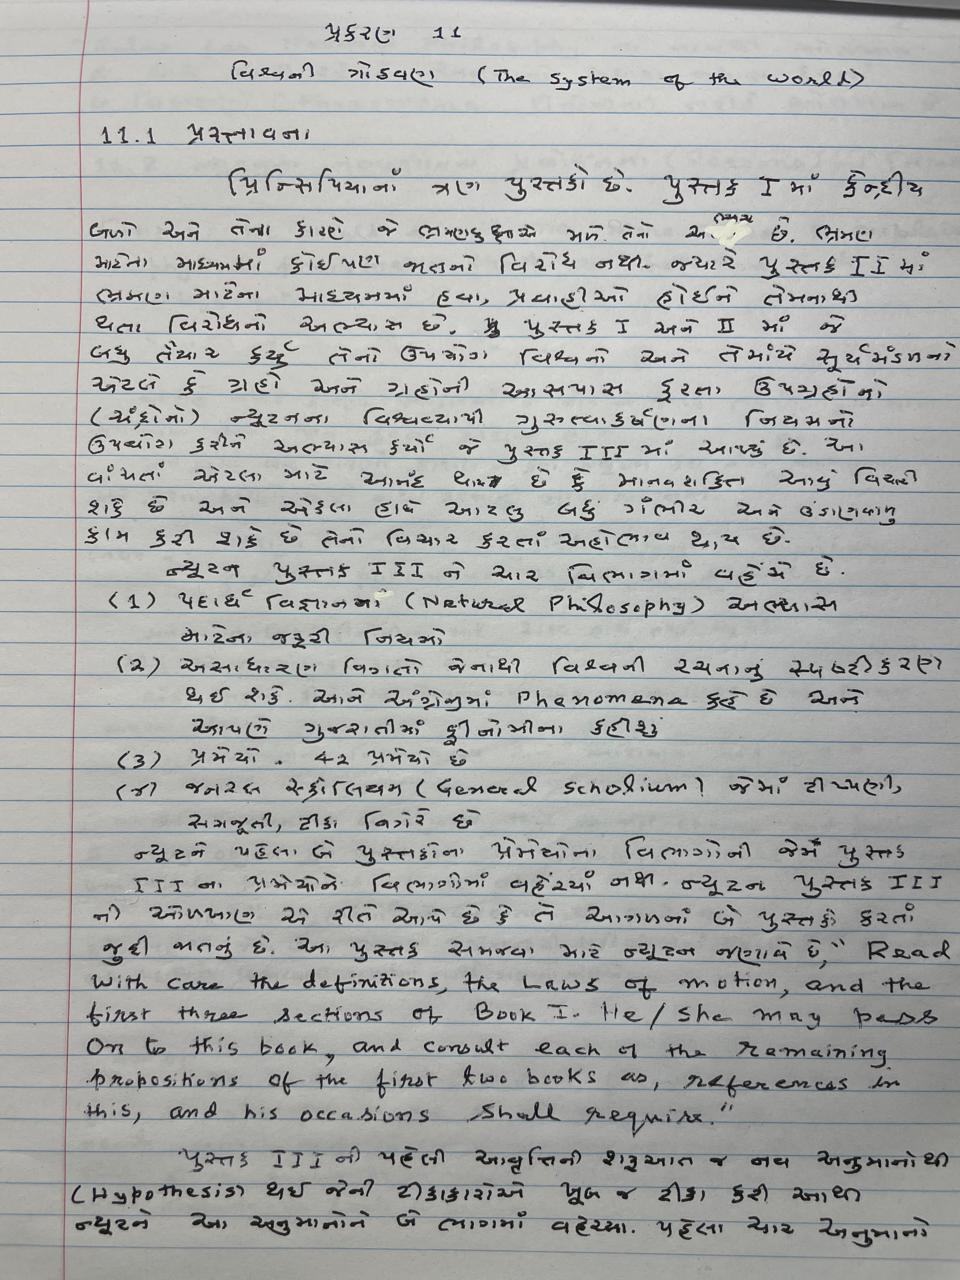 પ્રકરણ 11
વિશ્વની ગોઠવણ (The System of the World)
11.1 પ્રસ્તાવના
પ્રિન્સિપિયાનાં ત્રણ પુસ્તકો છે. પુસ્તક I માં કેન્દ્રીય
બળો અને તેના કારણે જે ભ્રમણકક્ષાએ મળે તેનો અભ્યાસ છે. ભ્રમણ
માટેના માધ્યમમાં કોઈપણ જાતનો વિરોધ નથી. જ્યારે પુસ્તક II માં
ભ્રમણ માટેના માધ્યમમાં હવા, પ્રવાહીઓ હોઈને તેમનાથી
થતા વિરોધનો અભ્યાસ છે. પુસ્તક I અને II માં જે
બધુ તૈયાર કર્યું તેનો ઉપયોગ વિશ્વનો અને તેમાંયે સૂર્યમંડળનો
એટલે કે ગ્રહો અને ગ્રહોની આસપાસ ફરતા ઉપગ્રહોનો
(ચંદ્રોનો) ન્યૂટનના વિશ્વવ્યાપી ગુરુત્વાકર્ષણના નિયમનો
ઉપયોગ કરીને અભ્યાસ કર્યો જે પુસ્તક III માં આપ્યું છે. આ
વાંચતાં એટલા માટે આનંદ થાય છે કે માનવશક્તિ આવું વિચારી
શકે છે અને એકલા હાથે આટલુ બધું ગંભીર અને ઉંડાણવાળુ
કામ કરી શકે છે તેનો વિચાર કરતાં અહોભાવ થાય છે.
ન્યૂટન પુસ્તક III ને ચાર વિભાગમાં વહેંચે છે.
(1) પદાર્થ વિજ્ઞાનના (Natural Philosophy) અભ્યાસ
માટેના જરૂરી નિયમો
(૨) અસાધારણ વિગતો જેનાથી વિશ્વની રચનાનું સ્પષ્ટીકરણ
થઈ શકે. આને અંગ્રેજીમાં Phenomena કહે છે અને
આપણે ગુજરાતીમાં ફીનોમીના કહીશું
(3) પ્રમેયો. 42 પ્રમેયો છે
(૪) જનરલ સ્કોલિયમ (General Scholium) જેમાં ટીપ્પણી,
સમજૂતી, ટીકા વિગેરે છે
ન્યૂટને પહેલા બે પુસ્તકોના પ્રમેયોના વિભાગોની જેમ પુસ્તક
III ના પ્રમેયોને વિભાગોમાં વહેંચ્યાં નથી. ન્યૂટન પુસ્તક III
ની ઓળખાણ એ રીતે આપે છે કે તે આગળનાં બે પુસ્તકો કરતાં
જુદી જાતનું છે. આ પુસ્તક સમજવા માટે ન્યૂટન જણાવે છે, "Read
with care the definitions, the Laws of motion, and the
first three sections of Book I. He/She may pass
on to this book, and consult each of the remaining
propositions of the first two books as, references in
this, and his occasions shall require."
પુસ્તક III ની પહેલી આવૃત્તિની શરૂઆત જ નવ અનુમાનોથી
(Hypothesis) થઈ જેની ટીકાકારોએ ખૂબ જ ટીકા કરી આથી
ન્યૂટને આ અનુમાનોને બે ભાગમાં વહેંચ્યા. પહેલા ચાર અનુમાનો